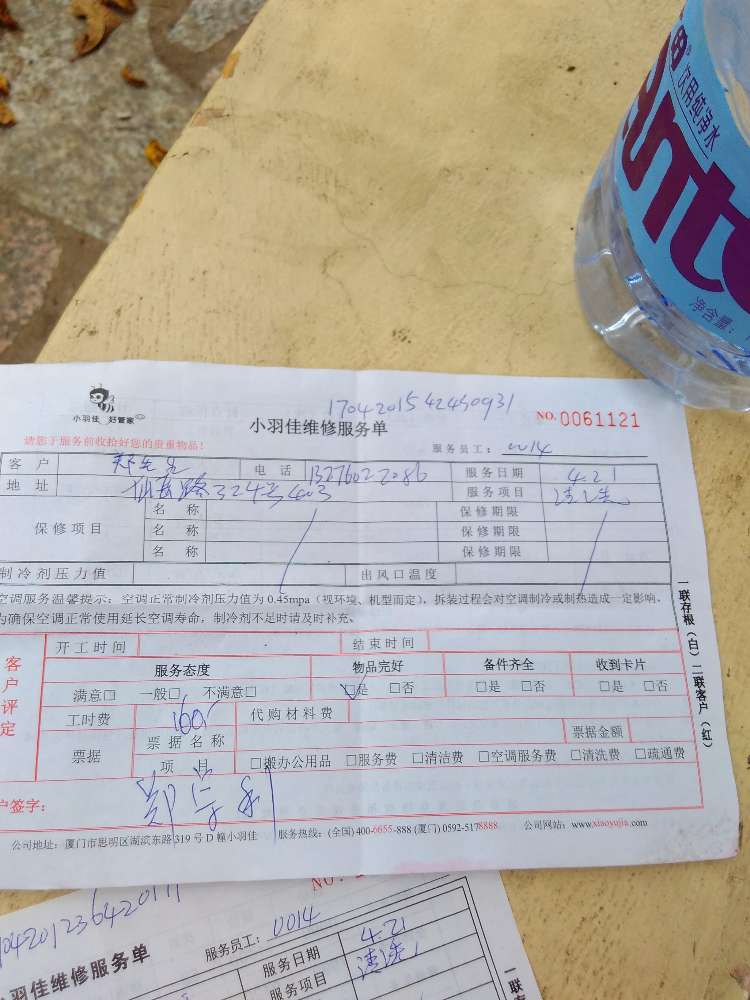 饮用纯净水
净含量:
小羽佳 好管家
1704201542450931
小羽佳维修服务单
NO.0061121
请您于服务前收拾好您的贵重物品!
服务员工: 0014
客户 郑先生 电话 13276022086 服务日期 4.21
地址 324号403 服务项目 清洗
保修项目
名称 保修期限
名称 保修期限
名称 保修期限
制冷剂压力值 出风口温度
空调服务温馨提示:空调正常制冷剂压力值为0.45mpa(视环境、机型而定),拆装过程会对空调制冷或制热造成一定影响。
为确保空调正常使用延长空调寿命,制冷剂不足时请及时补充。
客户评定
开工时间 结束时间
服务态度 物品完好 备件齐全 收到卡片
满意□ 一般□ 不满意□ ☑是 □否 □是 □否 □是 □否
工时费 160 代购材料费
票据 票据名称 票据金额
项目 □搬办公用品 □服务费 □清洁费 □空调服务费 □清洗费 □疏通费
户签字:
公司地址:厦门市思明区湖滨东路319号D幢小羽佳 服务热线:(全国)400-6655-888 (厦门)0592-5178888 公司网站:www.xiaoyujia.com
一联存根(白)二联客户(红)
NO.
小羽佳维修服务单
服务员工: 0014
服务日期 4.21
服务项目 清洗
一联